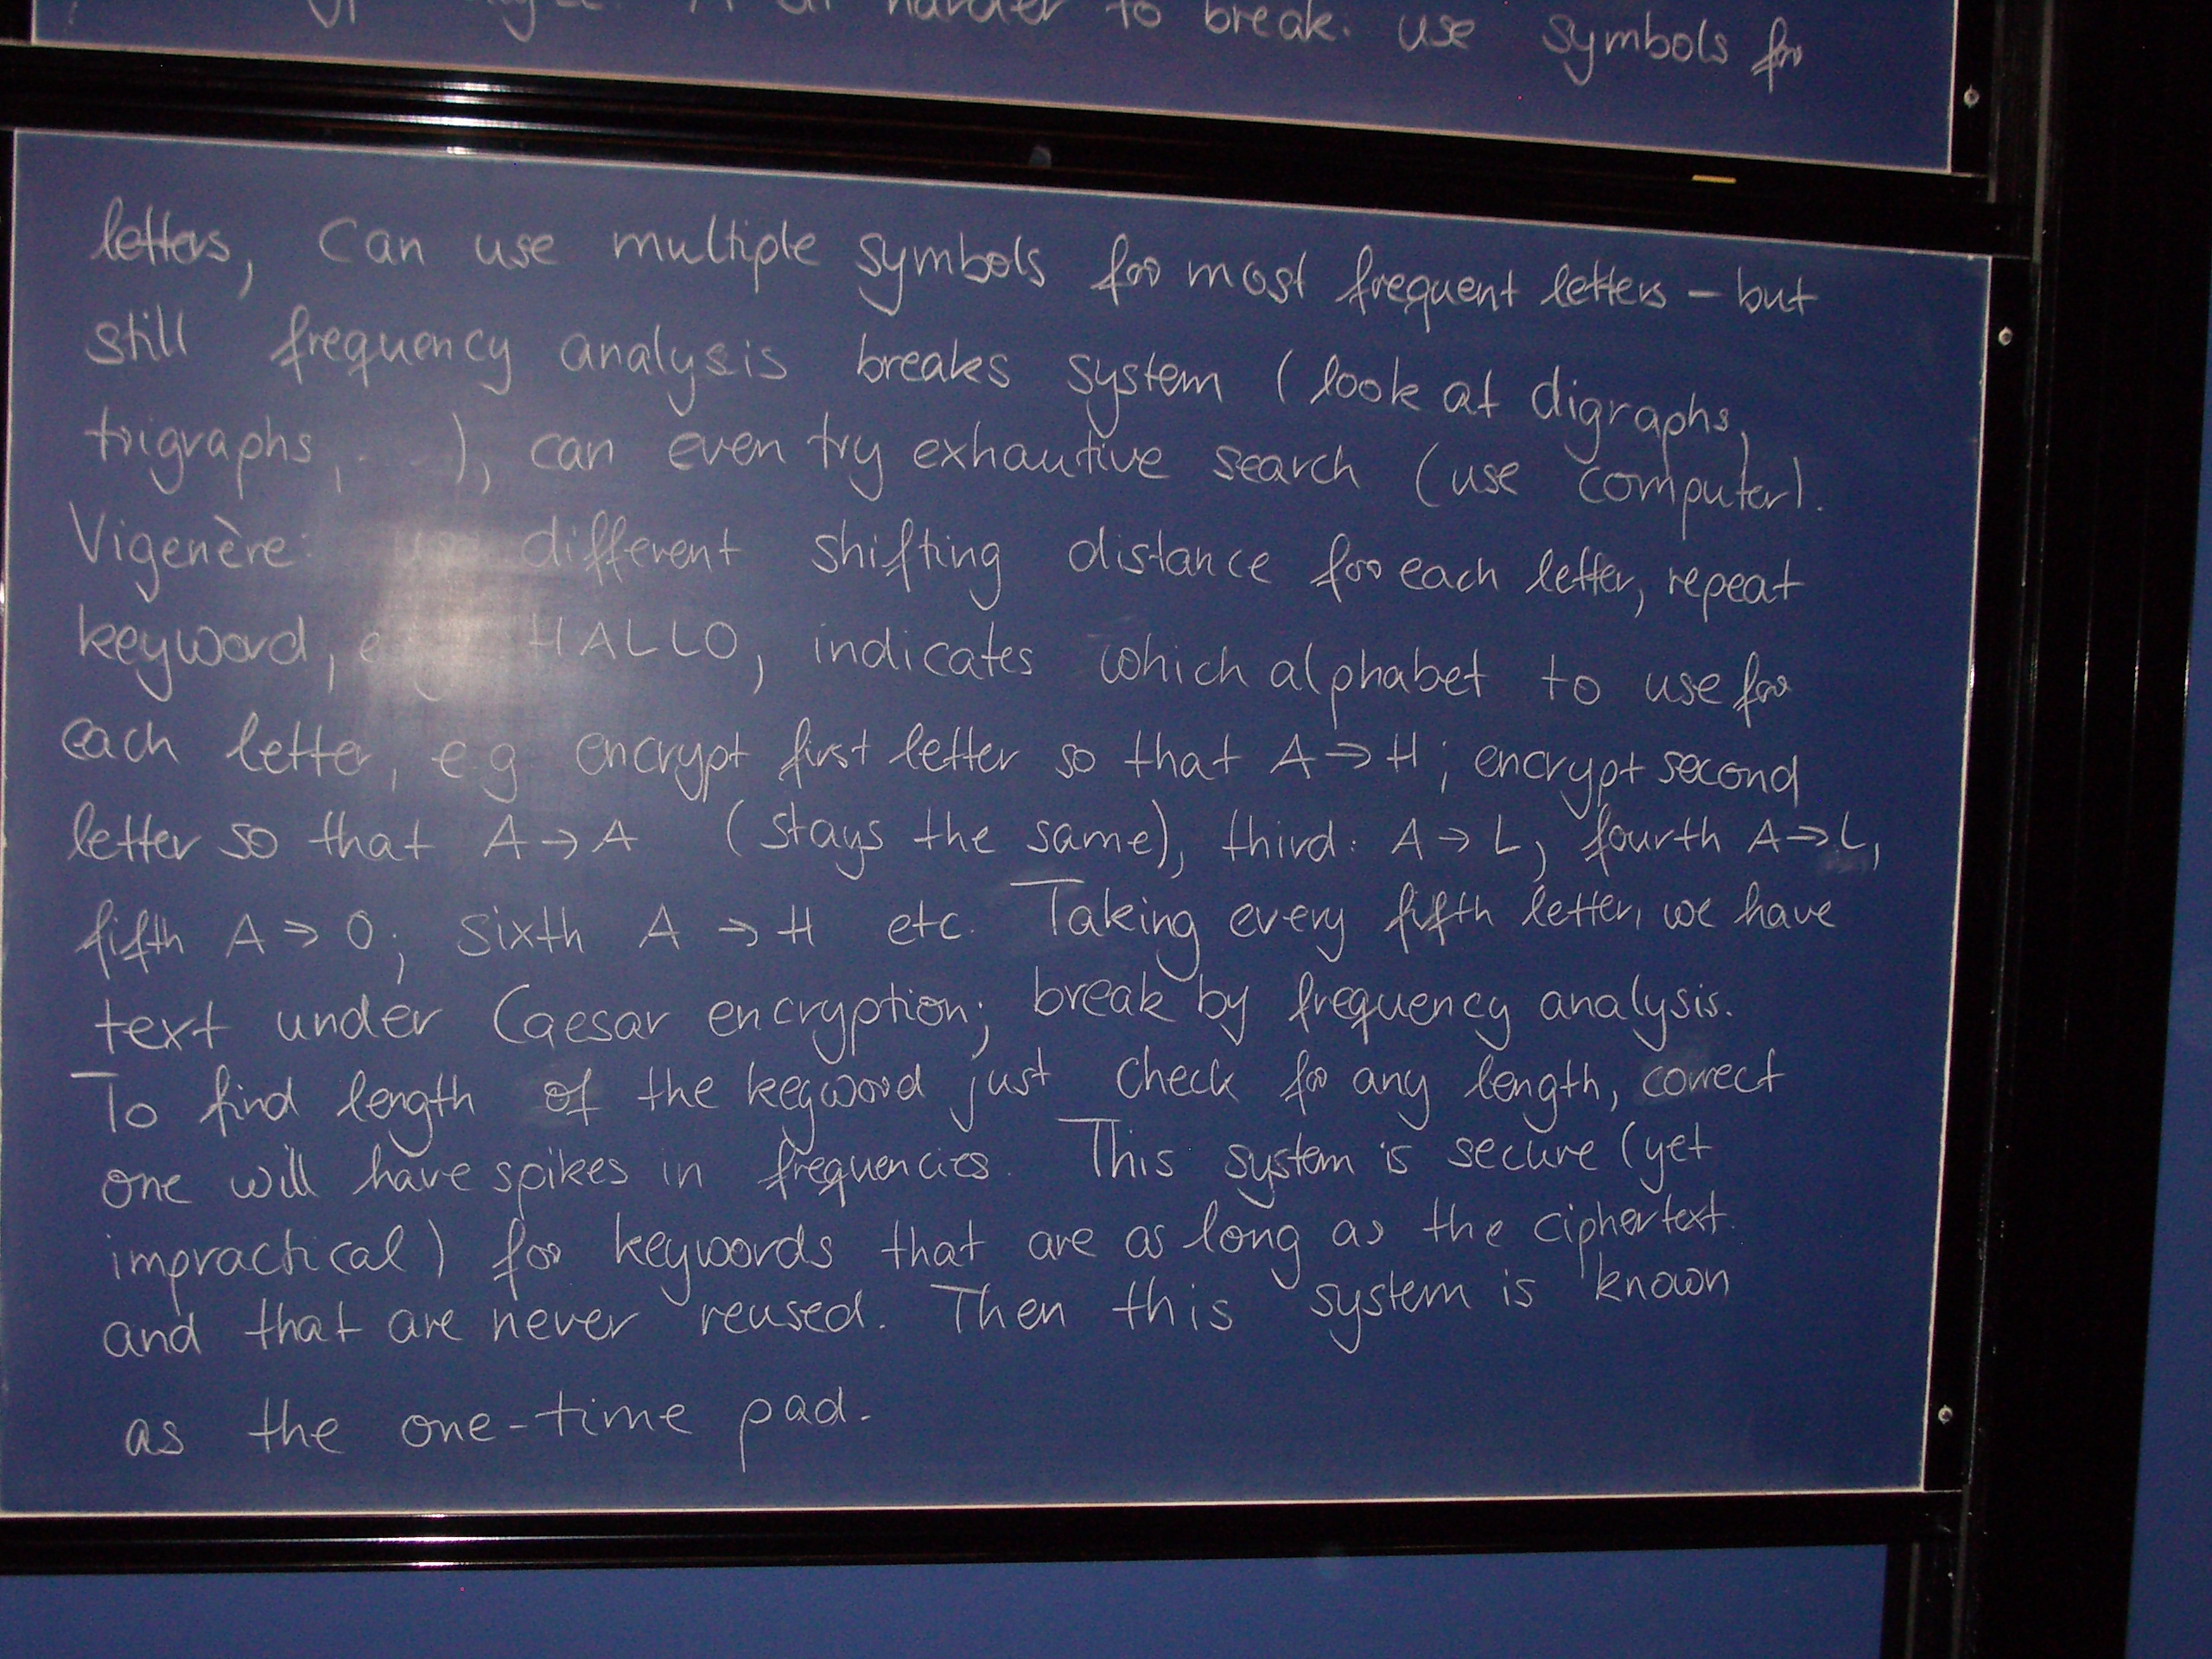 harder to break. use symbols for
letters, can use multiple symbols for most frequent letters – but
still frequency analysis breaks system (look at digraphs,
trigraphs, . . ), can even try exhautive search (use computer).
Vigenère: use different shifting distance for each letter, repeat
keyword, e.g. HALLO, indicates which alphabet to use for
each letter, e.g encrypt first letter so that A → H; encrypt second
letter so that A → A (stays the same), third: A → L, fourth A → L,
fifth A → O; sixth A → H etc. Taking every fifth letter, we have
text under Caesar encryption; break by frequency analysis.
To find length of the keyword just check for any length, correct
one will have spikes in frequencies. This system is secure (yet
impractical) for keywords that are as long as the ciphertext
and that are never reused. Then this system is known
as the one-time pad.